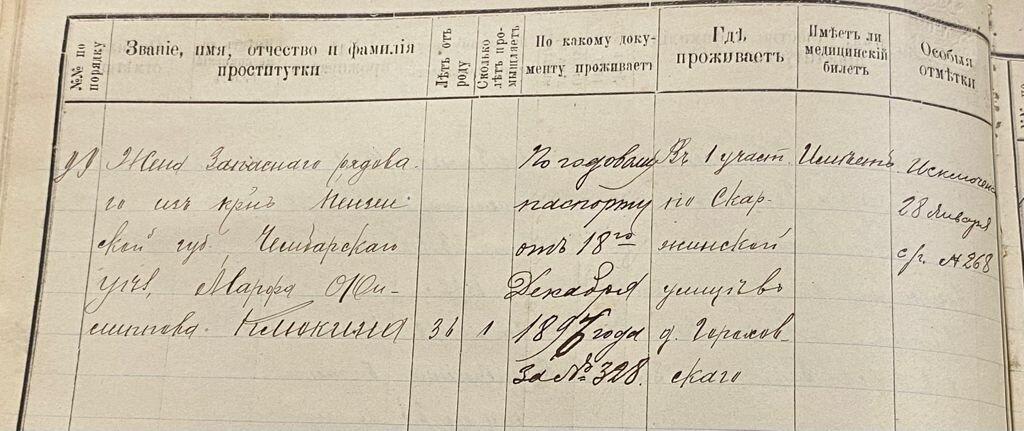 №№ по порядку
Званіе, имя, отчество и фамилія проститутки
Лѣтъ отъ роду
Сколько лѣтъ промышляетъ
По какому документу проживаетъ
Гдѣ проживаетъ
Имѣетъ ли медицинскій билетъ
Особыя отмѣтки
99
Жена Запаснаго рядова-
го изъ крнъ Пензен
ской губ. Чембарскаго
Марфа
Клюкина
36
1
По годовому
паспорту
отъ 18го
Декабря
1896 года
За № 328.
Въ 1 участ.
по Скар-
жинской
улицѣ въ
д. Горохов
скаго
Имѣетъ
Исключена
28 Января
с/г. № 268